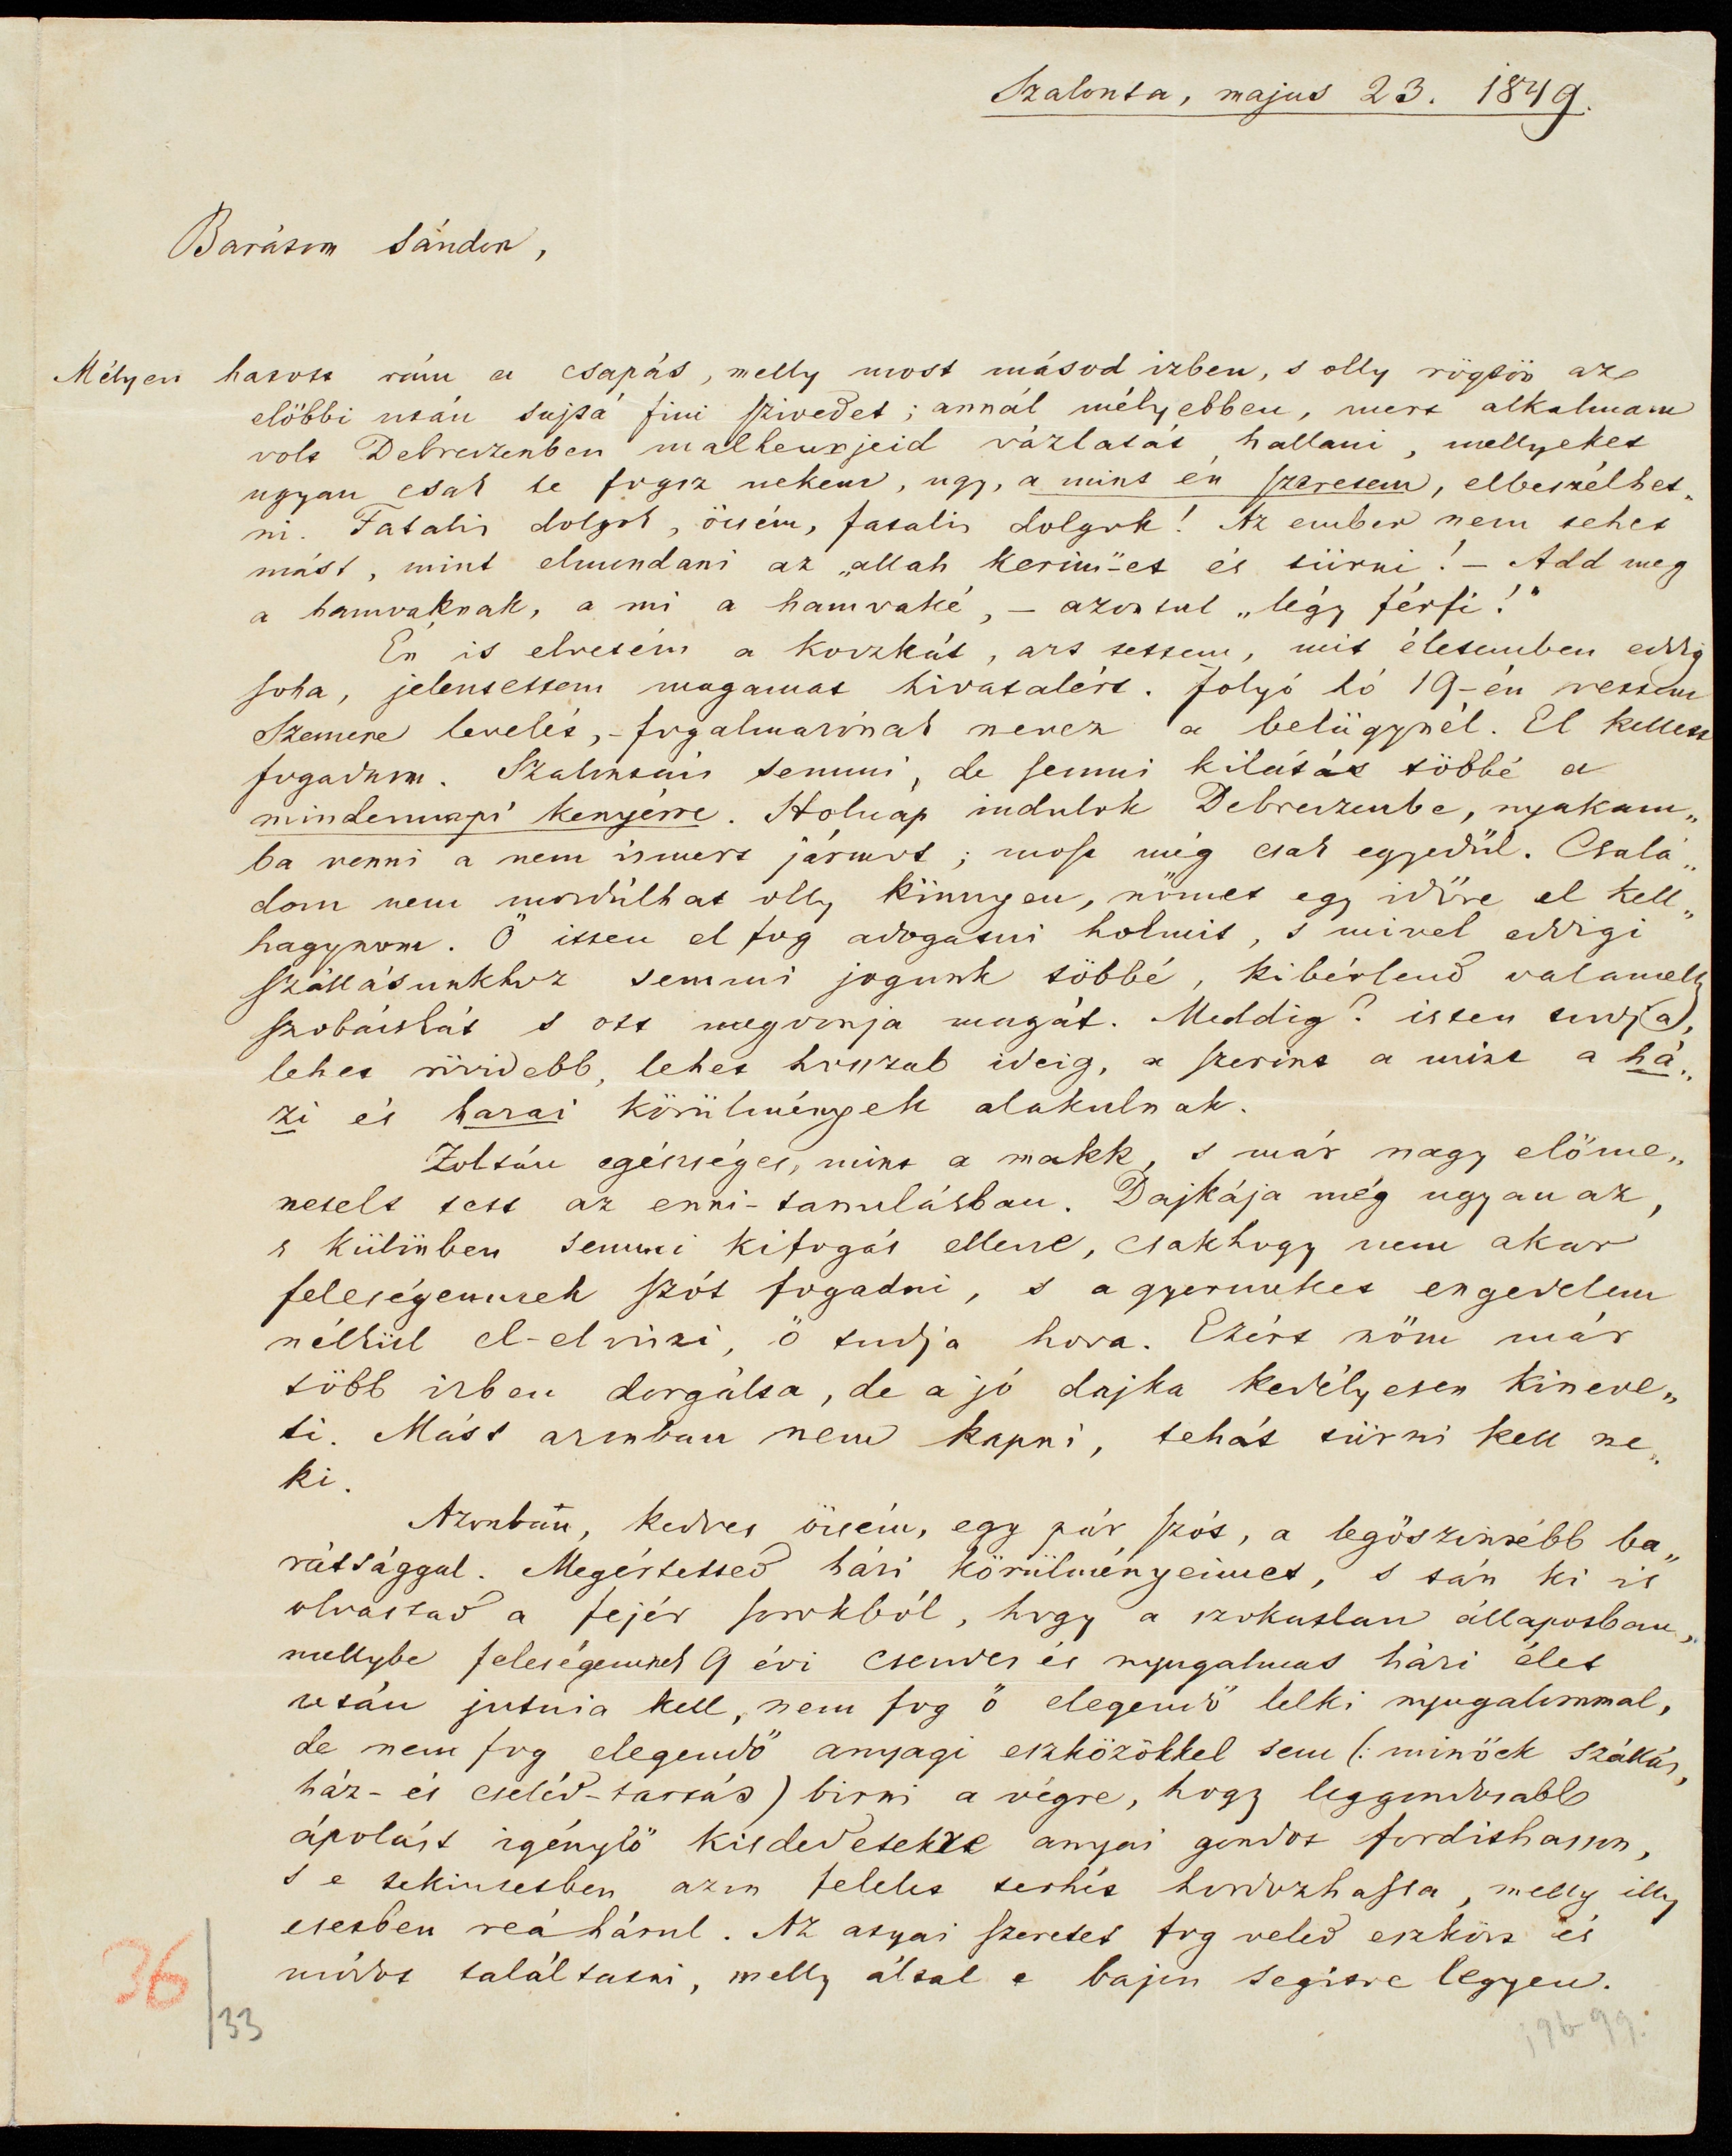 Szalonta, majus 23. 1849.
Barátom Sándor,
Mélyen hatott rám a csapás, melly most másod izben, s olly rögtön az
előbbi után sujtá fiui szivedet; annál mélyebben, mert alkalmam
volt Debreczenben malheurjeid vázlatát hallani, mellyeket
ugyan csak te fogsz nekem, ugy, a mint én szeretem, elbeszélhet„
ni. Fatalis dolgok, öcsém, fatalis dolgok! Az ember nem tehet
mást, mint elmondani az „allah kerim“-et és türni! – Add meg
a hamvaknak, a mi a hamvaké, – azontul „légy férfi!“
Én is elvetém a koczkát, azt tettem, mit életemben eddig
soha, jelentettem magamat hivatalért. Folyó hó 19-én vettem
Szemere levelét, – fogalmazónak nevez a belügynél. El kellett
fogadnom. Szalontán semmi, de semmi kilátás többé a
mindennapi kenyérre. Holnap indulok Debreczenbe, nyakam„
ba venni a nem ismert jármot; most még csak egyedül. Csalá„
dom nem mozdúlhat olly könnyen, nőmet egy időre el kell„
hagynom. Ő itten el fog adogatni holmit, s mivel eddigi
szállásunkhoz semmi jogunk többé, kibérlend valamelly
szobácskát s ott megvonja magát. Meddig? isten tudja,
lehet rövidebb, lehet hosszab ideig, a szerint a mint a há„
zi és hazai körülmények alakulnak.
Zoltán egészséges, mint a makk, s már nagy előme„
netelt tett az enni-tanulásban. Dajkája még ugyan az,
s különben semmi kifogás ellene, csakhogy nem akar
feleségemnek szót fogadni, s a gyermeket engedelem
nélkül el-elviszi, ő tudja hova. Ezért nőm már
több izben dorgálta, de a jó dajka kedélyesen kineve„
ti. Mást azonban nem kapni, tehát türni kell ne„
ki.
Azonban, kedves öcsém, egy pár szót, a legőszintébb ba„
rátsággal. Megértetted házi körülményeimet, s tán ki is
olvastad a fejér sorokból, hogy a szokatlan állapotban,
mellybe feleségemnek 9 évi csendes és nyugalmas házi élet
után jutnia kell, nem fog ő elegendő lelki nyugalommal,
de nem fog elegendő anyagi eszközökkel sem (: minőek szállás,
ház- és cseléd-tartás) birni a végre, hogy leggondosabb
ápolást igénylő kisdedetekre anyai gondot fordithasson,
s e tekintetben azon felelet terhét hordozhassa, melly illy
esetben reá hárul. Az atyai szeretet fog veled eszközt és
módot találtatni, melly által e bajon segitve legyen.
36
33